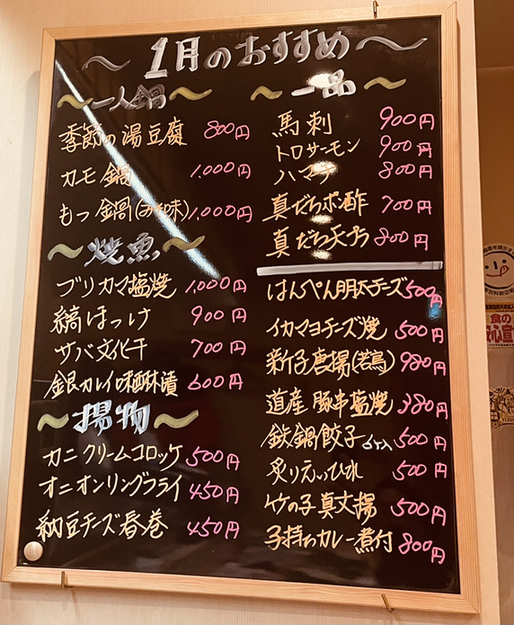 〜1月のおすすめ〜
〜一人鍋〜
季節の湯豆腐 800円
カモ鍋 1,000円
もつ鍋(みそ味) 1,000円
〜焼魚〜
ブリカマ塩焼 1,000円
縞ほっけ 900円
サバ文化干 700円
銀カレイ味醂漬 600円
〜揚物〜
カニクリームコロッケ 500円
オニオンリングフライ 450円
納豆チーズ春巻 450円
〜一品〜
馬刺 900円
トロサーモン 900円
ハマチ 800円
真だちポン酢 700円
真だち天ぷら 800円
はんぺん明太チーズ 500円
イカマヨチーズ焼 500円
新子唐揚(若鳥) 980円
道産豚串塩焼 380円
鉄鍋餃子 6ヶ入 500円
炙りえいひれ 500円
竹の子真丈揚 500円
子持ちカレー煮付 800円
食の
安心宣